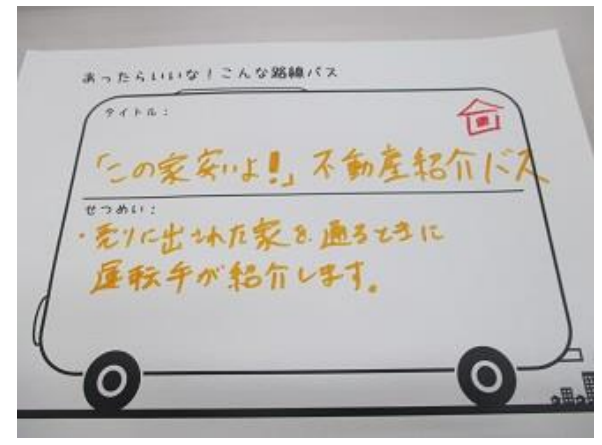 あったらいいな！こんな路線バス
タイトル：
「この家安いよ！」不動産紹介バス
せつめい：
・売りに出された家を通るときに
運転手が紹介します。